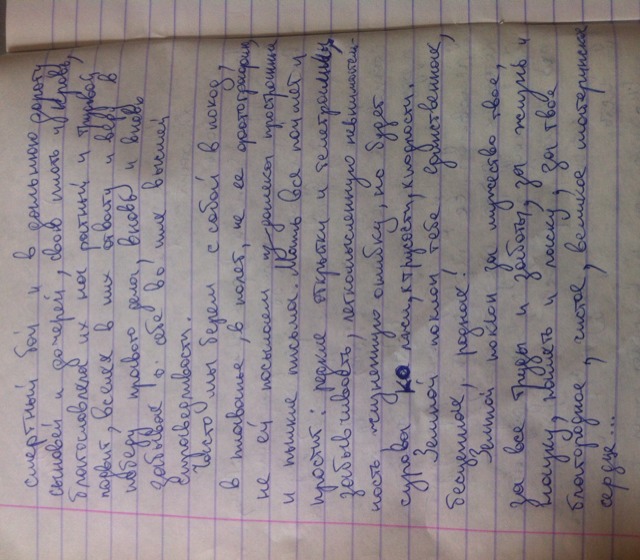 смертный бой и в дальнюю дорогу
сыновей и дочерей, свою плоть и кровь,
благославляла их на ратный и трудовой
подвиг, вселяя в них отвагу и веру в
победу правого дела, вновь и вновь
забывая о себе во имя высшей
справедливости.
Часто мы берем с собой в поход,
в плаванье, в полет, не ее фотографию,
не ей посылаем издалека пространные
и пылкие письма. Мать все поймет и
простит: редкие открытки и телеграммы,
забывчивость, легкомысленную невнимательность,
ность жизненную ошибку, но будет
сурова к лжи, к трусости, к подлости.
Земной поклон тебе единственная,
бесценная, родная!
Земной поклон за мужество твое,
за все труды и заботы, за жизнь и
науку, память и ласку, за твое
благородное, чистое, великое материнское
сердце...